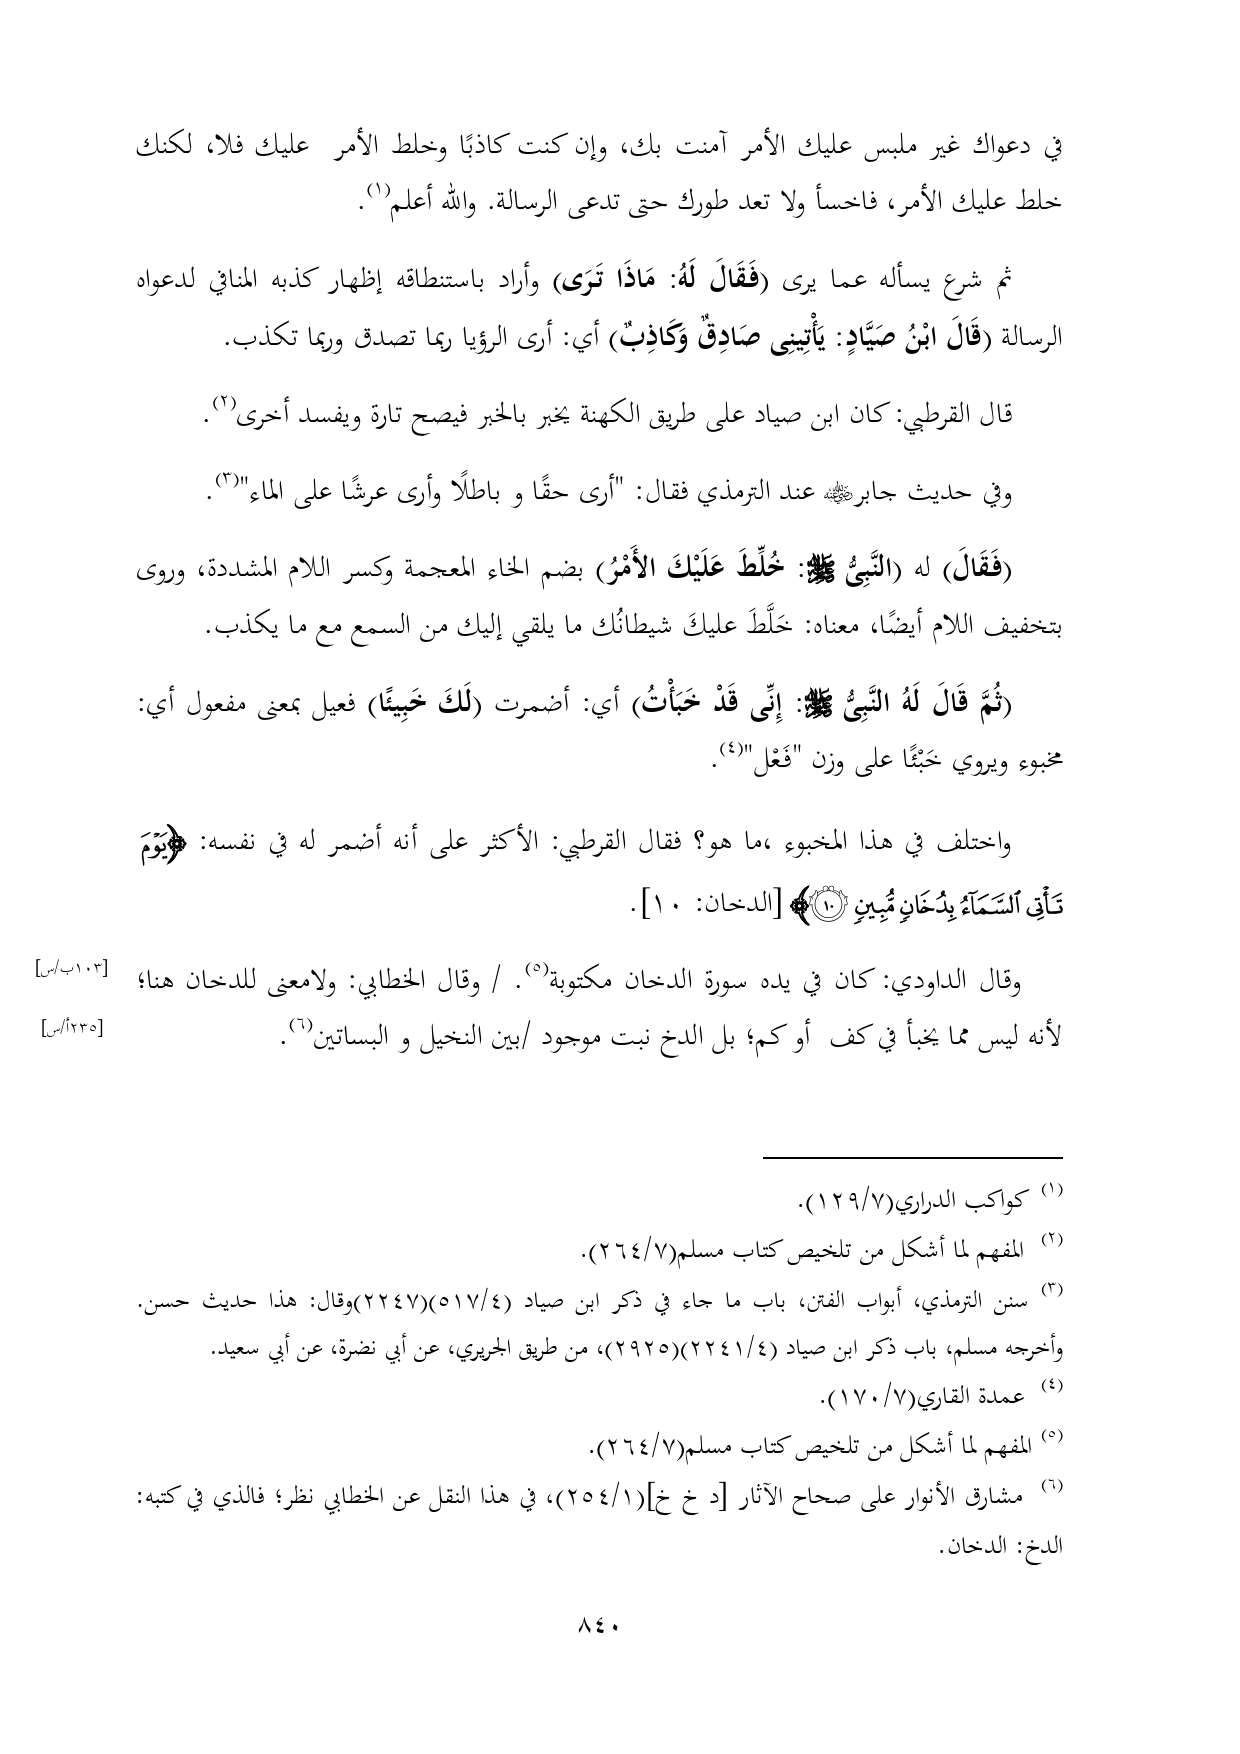 في دعواك غير ملبس عليك الأمر آمنت بك، وإن كنت كاذبًا وخلط الأمر عليك فلا، لكنك
خلط عليك الأمر، فاخسأ ولا تعد طورك حتى تدعى الرسالة. والله أعلم(١).
ثم شرع يسأله عما يرى (فَقَالَ لَهُ: مَاذَا تَرَى) وأراد باستنطاقه إظهار كذبه المنافي لدعواه
الرسالة (قَالَ ابْنُ صَيَّادٍ: يَأْتِينِى صَادِقٌ وَكَاذِبٌ) أي: أرى الرؤيا ربما تصدق وربما تكذب.
قال القرطبي: كان ابن صياد على طريق الكهنة يخبر بالخبر فيصح تارة ويفسد أخرى(٢).
وفي حديث جابر رضي الله عنه عند الترمذي فقال: "أرى حقًا و باطلًا وأرى عرشًا على الماء"(٣).
(فَقَالَ) له (النَّبِىُّ ﷺ: خُلِّطَ عَلَيْكَ الأَمْرُ) بضم الخاء المعجمة وكسر اللام المشددة، وروى
بتخفيف اللام أيضًا، معناه: خَلَّطَ عليكَ شيطانُك ما يلقي إليك من السمع مع ما يكذب.
(ثُمَّ قَالَ لَهُ النَّبِىُّ ﷺ: إِنِّى قَدْ خَبَأْتُ) أي: أضمرت (لَكَ خَبِيئًا) فعيل بمعنى مفعول أي:
مخبوء ويروي خَبْئًا على وزن "فَعْل"(٤).
واختلف في هذا المخبوء ،ما هو؟ فقال القرطبي: الأكثر على أنه أضمر له في نفسه: ﴿يَوْمَ
تَأْتِى ٱلسَّمَآءُ بِدُخَانٖ مُّبِينٖ ١٠﴾ [الدخان: ١٠].
وقال الداودي: كان في يده سورة الدخان مكتوبة(٥). / وقال الخطابي: ولامعنى للدخان هنا؛ [١٠٣ب/س]
لأنه ليس مما يخبأ في كف أو كم؛ بل الدخ نبت موجود /بين النخيل و البساتين(٦). [٢٣٥أ/س]
(١) كواكب الدراري(١٢٩/٧).
(٢) المفهم لما أشكل من تلخيص كتاب مسلم(٢٦٤/٧).
(٣) سنن الترمذي، أبواب الفتن، باب ما جاء في ذكر ابن صياد (٥١٧/٤)(٢٢٤٧)وقال: هذا حديث حسن.
وأخرجه مسلم، باب ذكر ابن صياد (٢٢٤١/٤)(٢٩٢٥)، من طريق الجريري، عن أبي نضرة، عن أبي سعيد.
(٤) عمدة القاري(١٧٠/٧).
(٥) المفهم لما أشكل من تلخيص كتاب مسلم(٢٦٤/٧).
(٦) مشارق الأنوار على صحاح الآثار [د خ خ](٢٥٤/١)، في هذا النقل عن الخطابي نظر؛ فالذي في كتبه:
الدخ: الدخان.
٨٤٠